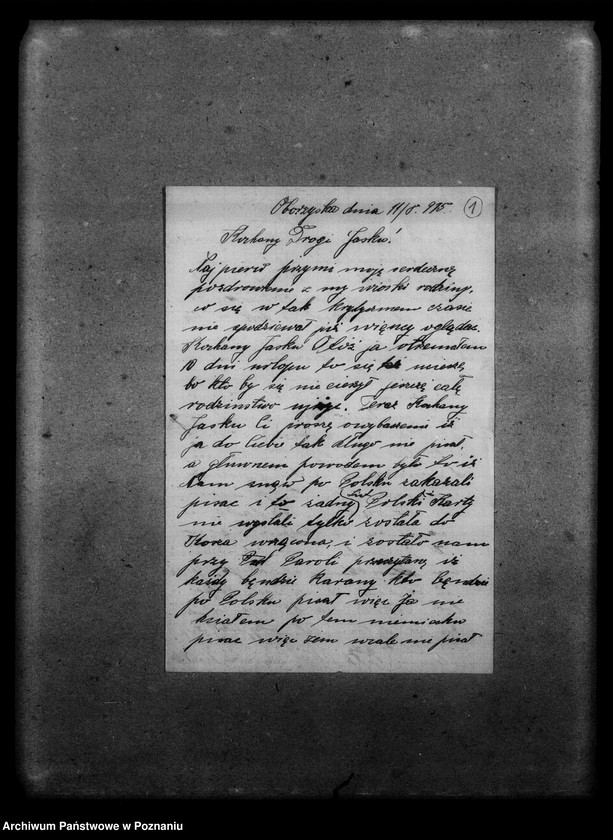 Oborzyska dnia 11/8. 915. 1
Kochany Drogi Jasku!
Naj pierw przymi moją serdeczną
pozdrowienie z my wioski rodziny,
co się w tak krytycznem czasie
nie spodziewał już więncy oglądac.
Kochany Jasku Otóż ja otrzmałem
10 dni urlopu to się też ucieszę
bo kto by się nie cieszył jeszczę całę
rodzinstwo ujżę. Teraz Kochany
Jasku Ci proszę o wybaczenie iż
ja do Ciebie tak długo nie pisał
a głównem powodem było to iż
nam znów po Polsku zakazali
pisac i to żadny Polski Karty
nie wysłali tylko została do
wrócona, i zostało nam
przy Paroli przeczytane iż
każdy bęndzie karany kto bęndzie
po Polsku pisał więc ja nie
działem po tem niemiecku
pisac więc żem wcale nie pisał
Archiwum Państwowe w Poznaniu